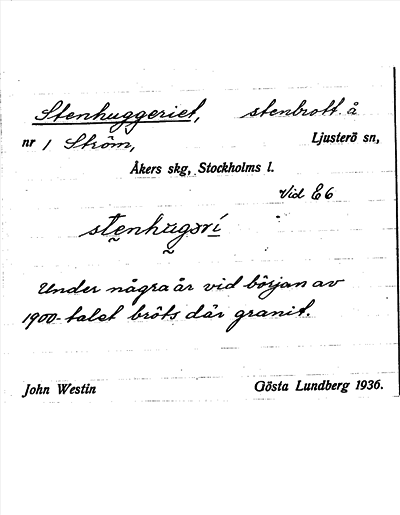 Stenhuggeriet, stenbrott å
nr 1 Ström, Ljusterö sn,
Åkers skg, Stockholms l.
Vid E6
ste̮nhu̮gərí
Under några år vid början av
1900-talet bröts där granit.
John Westin Gösta Lundberg 1936.